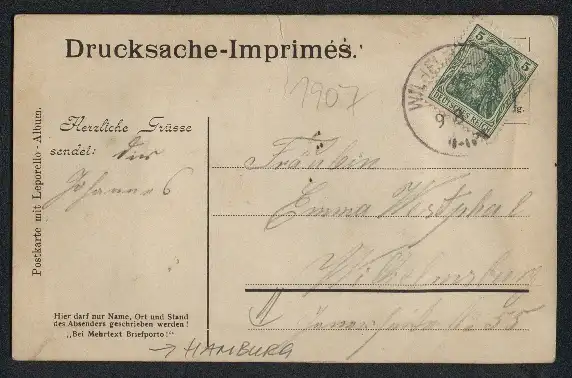 Drucksache-Imprimés.
1907
5 5
DEUTSCHES REICH
9 8
Postkarte mit Leporello-Album.
Herzliche Grüsse
sendet: dir
Johannes
Fräulein
Emma Westphal
Wilhelmsburg
No 55
Hier darf nur Name, Ort und Stand
des Absenders geschrieben werden!
„Bei Mehrtext Briefporto!"
→ HAMBURG